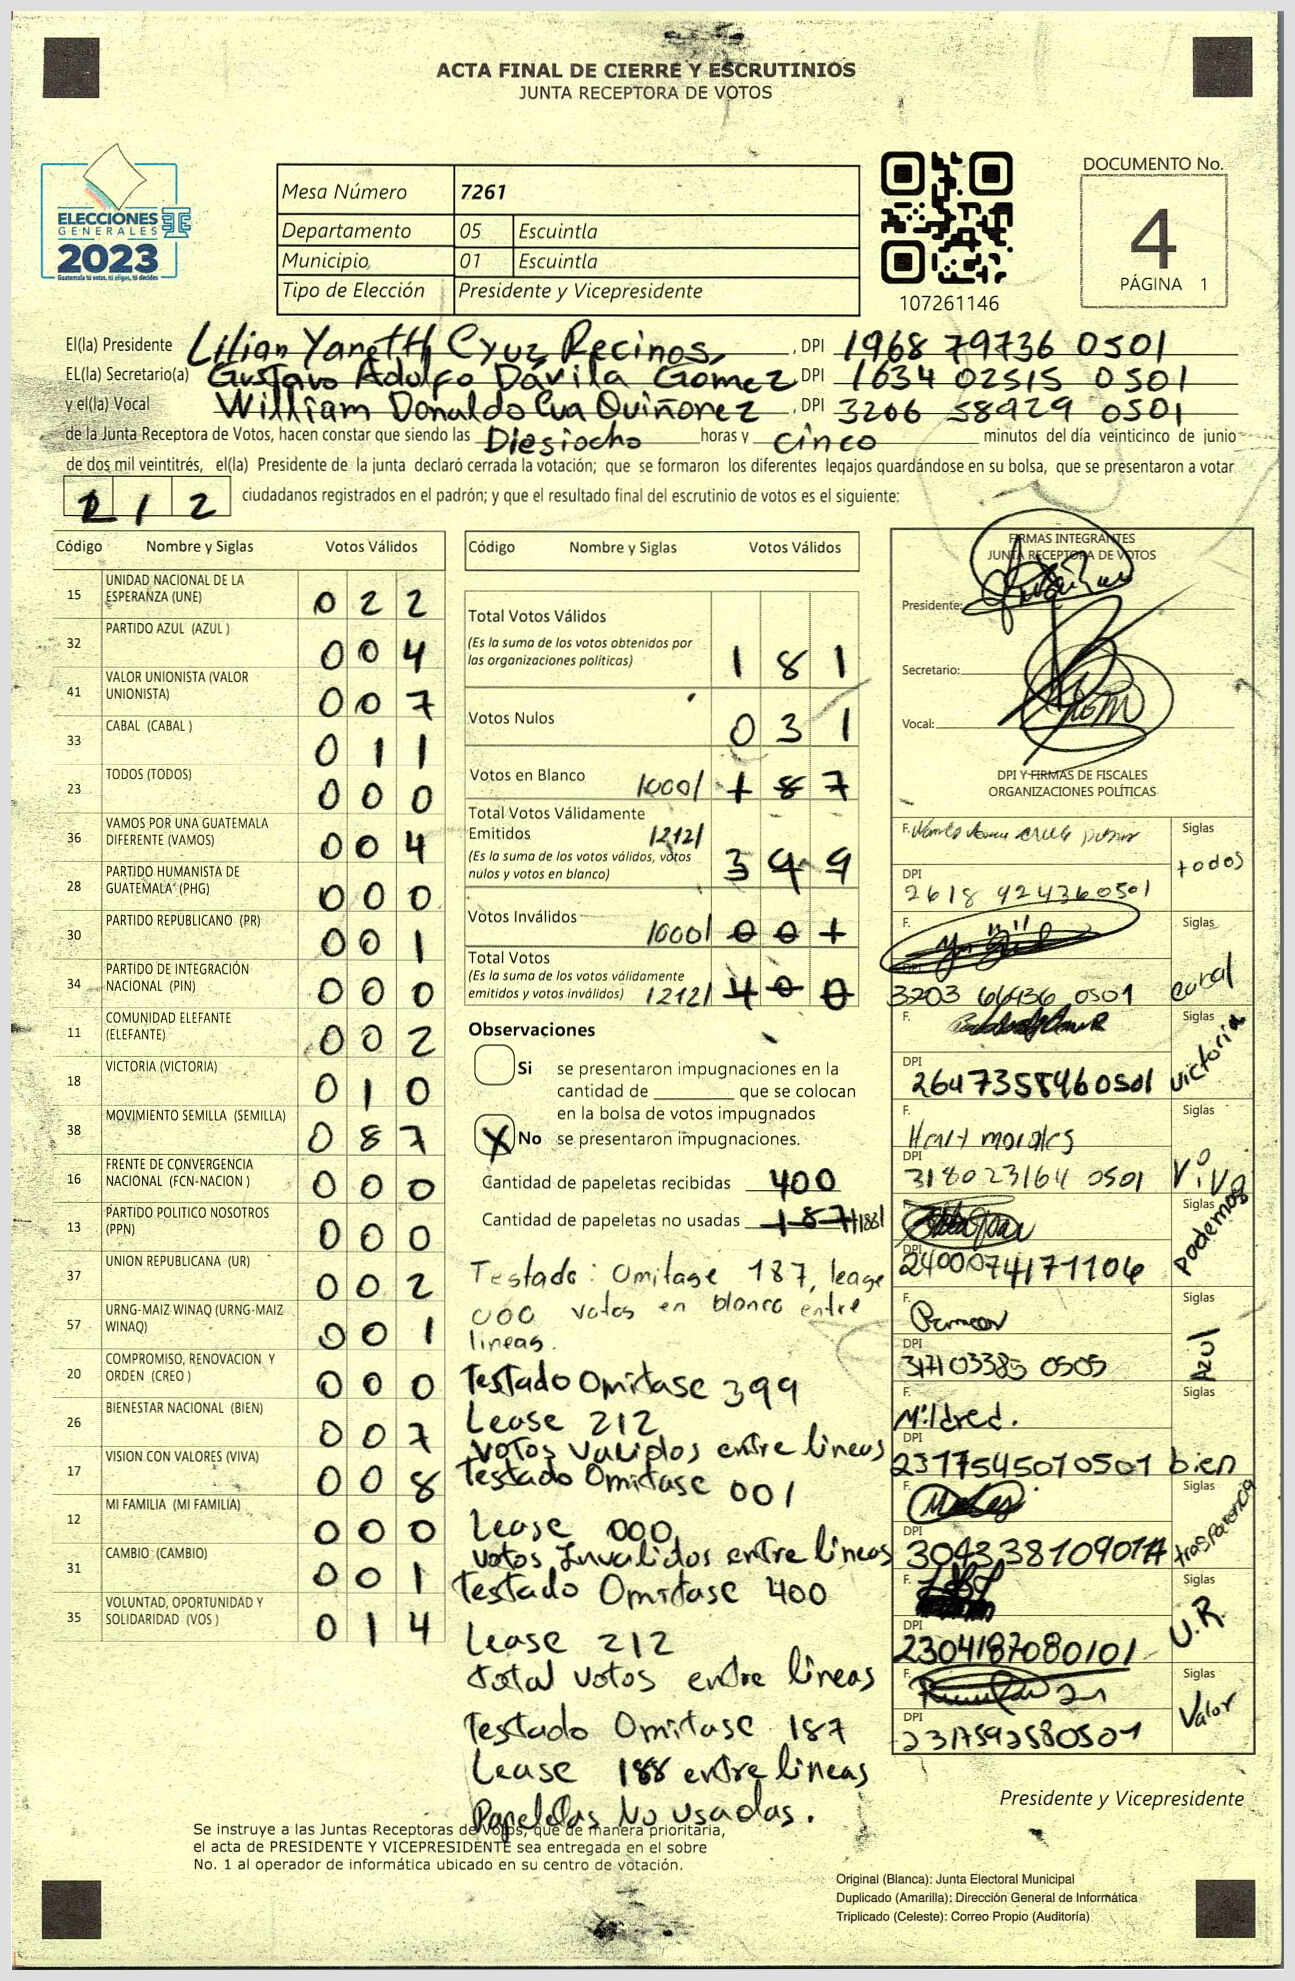 ACTA FINAL DE CIERRE Y ESCRUTINIOS
JUNTA RECEPTORA DE VOTOS
ELECCIONES
GENERALES
2023
Guatemala tú votas, tú eliges, tú decides
Mesa Número 7261
Departamento 05 Escuintla
Municipio 01 Escuintla
Tipo de Elección Presidente y Vicepresidente
107261146
DOCUMENTO No.
4
PÁGINA 1
El(la) Presidente Lilian Yaneth Cruz Recinos, DPI 1968 79736 0501
EL(la) Secretario(a) Gustavo Adolfo Dávila Gomez, DPI 1634 02515 0501
y el(la) Vocal William Donaldo Cua Quiñonez, DPI 3206 58929 0501
de la Junta Receptora de Votos, hacen constar que siendo las Diesiocho horas y cinco minutos del día veinticinco de junio
de dos mil veintitrés, el(la) Presidente de la junta declaró cerrada la votación; que se formaron los diferentes legajos guardándose en su bolsa, que se presentaron a votar
212 ciudadanos registrados en el padrón; y que el resultado final del escrutinio de votos es el siguiente:
Código Nombre y Siglas Votos Válidos
15 UNIDAD NACIONAL DE LA ESPERANZA (UNE) 022
32 PARTIDO AZUL (AZUL ) 004
41 VALOR UNIONISTA (VALOR UNIONISTA) 007
33 CABAL (CABAL ) 011
23 TODOS (TODOS) 000
36 VAMOS POR UNA GUATEMALA DIFERENTE (VAMOS) 004
28 PARTIDO HUMANISTA DE GUATEMALA (PHG) 000
30 PARTIDO REPUBLICANO (PR) 001
34 PARTIDO DE INTEGRACIÓN NACIONAL (PIN) 000
11 COMUNIDAD ELEFANTE (ELEFANTE) 002
18 VICTORIA (VICTORIA) 010
38 MOVIMIENTO SEMILLA (SEMILLA) 087
16 FRENTE DE CONVERGENCIA NACIONAL (FCN-NACION ) 000
13 PARTIDO POLITICO NOSOTROS (PPN) 000
37 UNION REPUBLICANA (UR) 002
57 URNG-MAIZ WINAQ (URNG-MAIZ WINAQ) 001
20 COMPROMISO, RENOVACION Y ORDEN (CREO ) 000
26 BIENESTAR NACIONAL (BIEN) 007
17 VISION CON VALORES (VIVA) 008
12 MI FAMILIA (MI FAMILIA) 000
31 CAMBIO (CAMBIO) 001
35 VOLUNTAD, OPORTUNIDAD Y SOLIDARIDAD (VOS ) 014
Código Nombre y Siglas Votos Válidos
Total Votos Válidos 181
(Es la suma de los votos obtenidos por
las organizaciones políticas)
Votos Nulos 031
Votos en Blanco /000/ 187
Total Votos Válidamente
Emitidos /212/ 399
(Es la suma de los votos válidos, votos
nulos y votos en blanco)
Votos Inválidos /000/ 001
Total Votos
(Es la suma de los votos válidamente
emitidos y votos inválidos) /212/ 400
Observaciones
Si se presentaron impugnaciones en la
cantidad de ________ que se colocan
en la bolsa de votos impugnados
X No se presentaron impugnaciones.
Cantidad de papeletas recibidas 400
Cantidad de papeletas no usadas 187 /188/
Testado: Omitase 187, lease
000 votos en blanco entre
lineas.
Testado Omitase 399
Lease 212
Votos validos entre lineas
Testado Omitase 001
Lease 000
Votos Invalidos entre lineas
Testado Omitase 400
Lease 212
total votos entre lineas
Testado Omitase 187
Lease 188 entre lineas
Papeletas No usadas.
FIRMAS INTEGRANTES
JUNTA RECEPTORA DE VOTOS
Presidente:
Secretario:
Vocal:
DPI Y FIRMAS DE FISCALES
ORGANIZACIONES POLÍTICAS
F. Siglas
DPI todos
2618 424360501
F. Siglas
DPI
3203 66936 0501 cabal
F. Siglas
DPI victoria
2647355460501
F. Henry morales Siglas
DPI
318023164 0501 Viva
F. Siglas
DPI podemos
2400074171106
F. Siglas
DPI Azul
317103385 0505
F. Mildred. Siglas
DPI
2317545010501 bien
F. Siglas
DPI trasparencia
F. Siglas
DPI U.R.
2304187080101
F. Siglas
DPI Valor
2317592580501
Presidente y Vicepresidente
Se instruye a las Juntas Receptoras de Votos, que de manera prioritaria,
el acta de PRESIDENTE Y VICEPRESIDENTE sea entregada en el sobre
No. 1 al operador de informática ubicado en su centro de votación.
Original (Blanca): Junta Electoral Municipal
Duplicado (Amarilla): Dirección General de Informática
Triplicado (Celeste): Correo Propio (Auditoría)